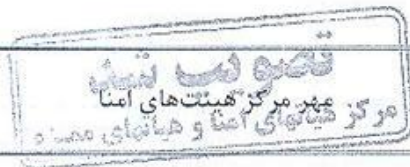 تصویب شد
مهر مرکز هیئت‌های امنا
مرکز هیاتهای امنا و هیاتهای ممیزه